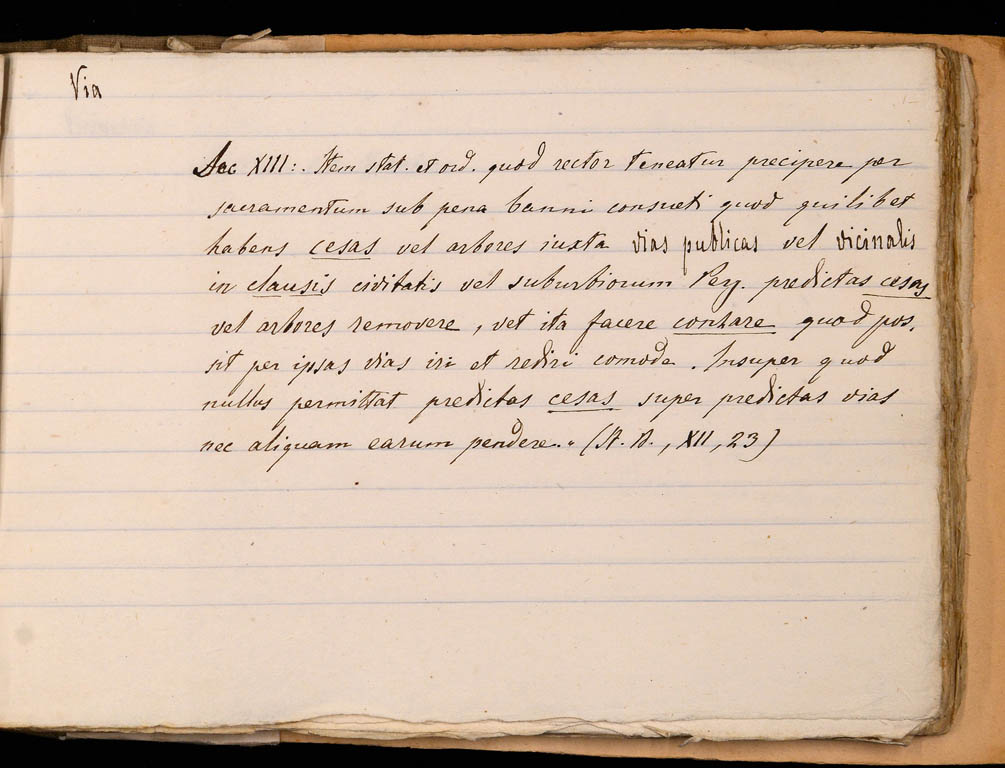 Via
Sec XIII: Item stat. et ord. quod rector teneatur precipere per
sacramentum sub pena banni consueti quod quilibet
habens cesas vel arbores iuxta vias publicas vel vicinalis
in clausis civitatis vel suburbiorum Perg. predictas cesas
vel arbores removere, vel ita facere contare quod pos,
sit per ipsas vias iri et rediri comode. Insuper quod
nullus permittat predictas cesas super predictas vias
nec aliquam earum pendere." (St. B., XII, 23)